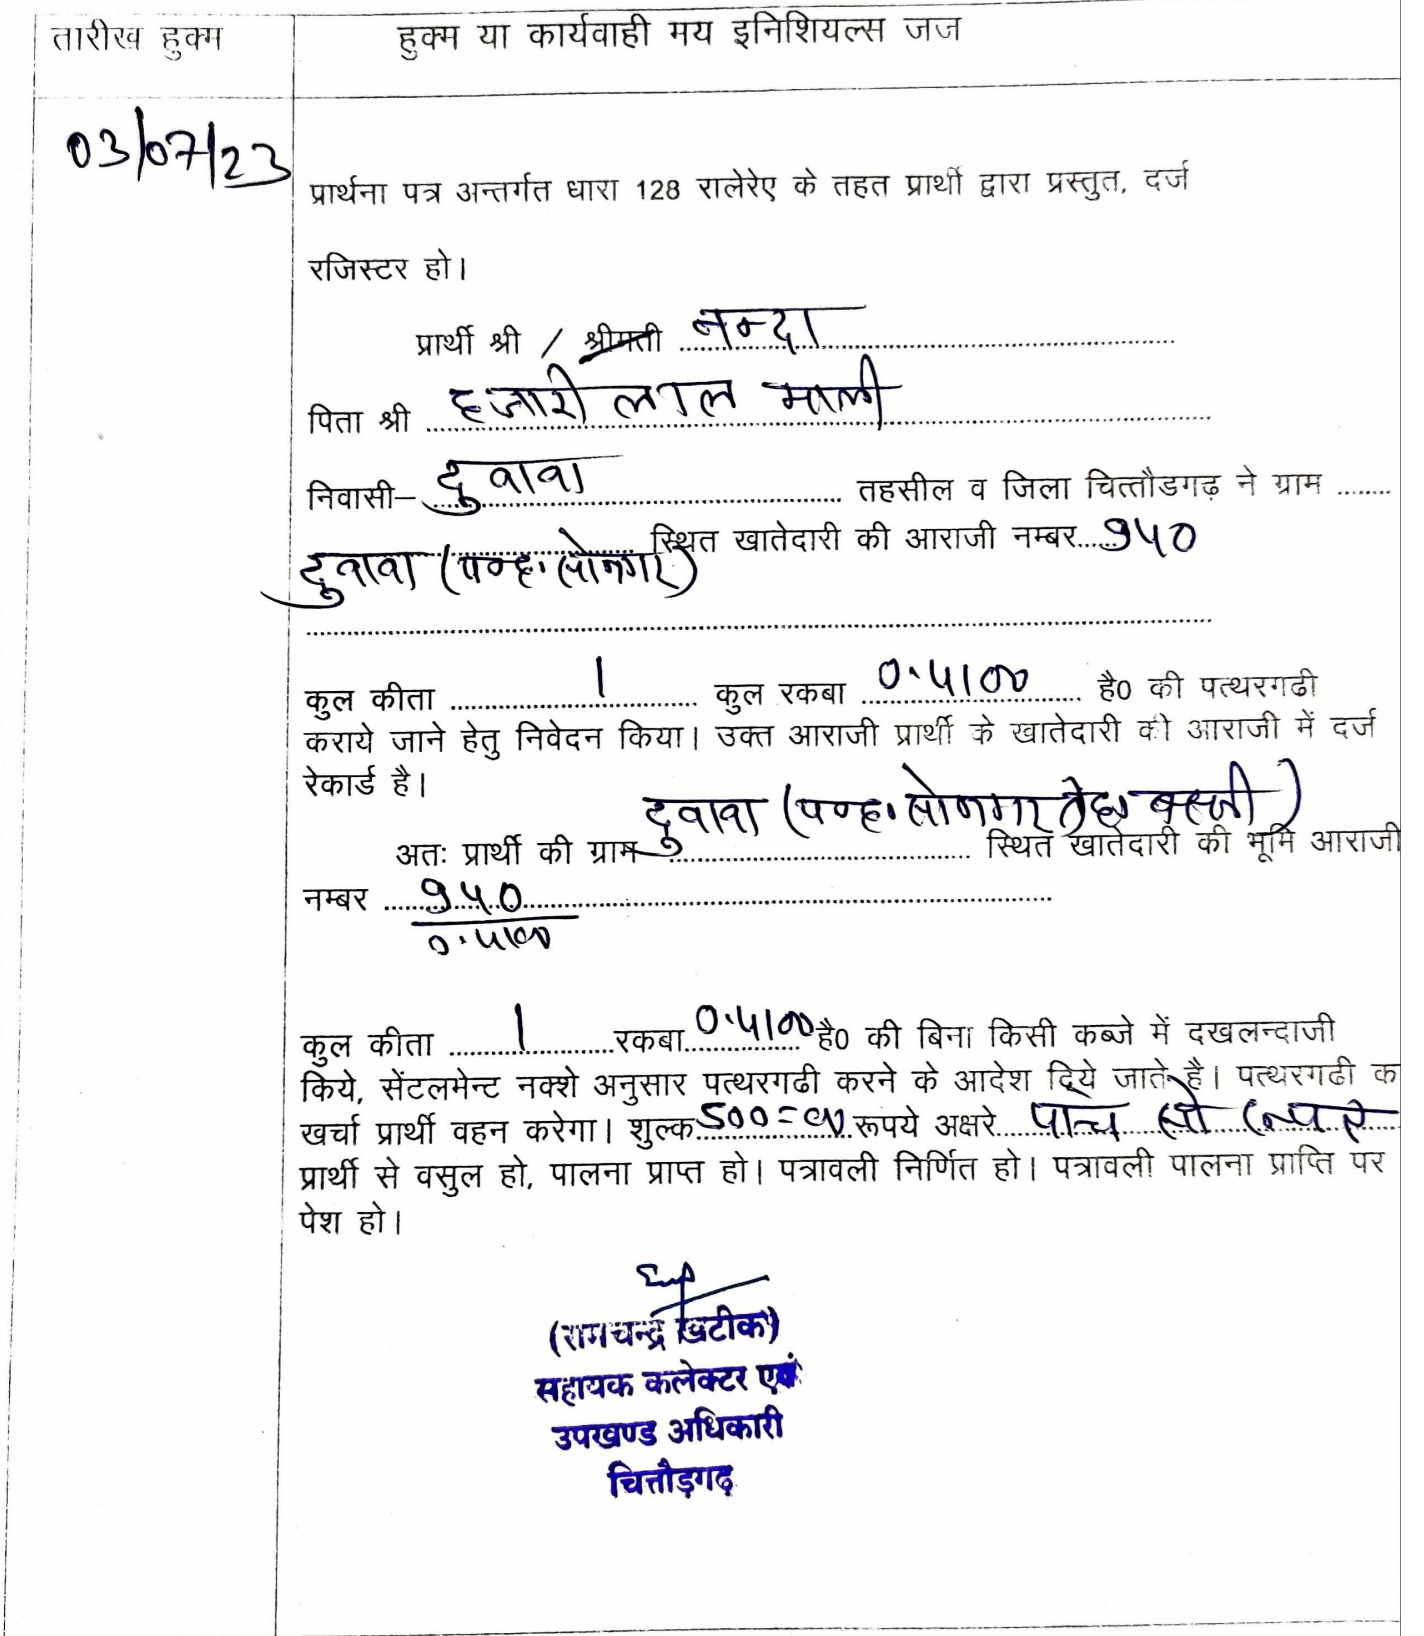 तारीख हुक्म
हुक्म या कार्यवाही मय इनिशियल्स जज
03/07/23
प्रार्थना पत्र अन्तर्गत धारा 128 रालेरेए के तहत प्रार्थी द्वारा प्रस्तुत, दर्ज
रजिस्टर हो।
प्रार्थी श्री / श्रीमती नन्दा
पिता श्री हजारी लाल माली
निवासी– दुवावा तहसील व जिला चित्तौडगढ़ ने ग्राम ........
दुवावा (पन्ह. सोनगर) स्थित खातेदारी की आराजी नम्बर... 940
कुल कीता 1 कुल रकबा 0.4100 है0 की पत्थरगढी
कराये जाने हेतु निवेदन किया। उक्त आराजी प्रार्थी के खातेदारी की आराजी में दर्ज
रेकार्ड है।
दुवावा (पन्ह. सोनगर तह. बस्सी)
अतः प्रार्थी की ग्राम स्थित खातेदारी की भूमि आराजी
नम्बर 940
0.4100
कुल कीता 1 रकबा 0.4100 है0 की बिना किसी कब्जे में दखलन्दाजी
किये, सेंटलमेन्ट नक्शे अनुसार पत्थरगढी करने के आदेश दिये जाते है। पत्थरगढी क
खर्चा प्रार्थी वहन करेगा। शुल्क 500=00 रूपये अक्षरे पान्च सौ रूपए
प्रार्थी से वसुल हो, पालना प्राप्त हो। पत्रावली निर्णित हो। पत्रावली पालना प्राप्ति पर
पेश हो।
(रामचन्द्र खटीक)
सहायक कलेक्टर एवं
उपखण्ड अधिकारी
चित्तौड़गढ़